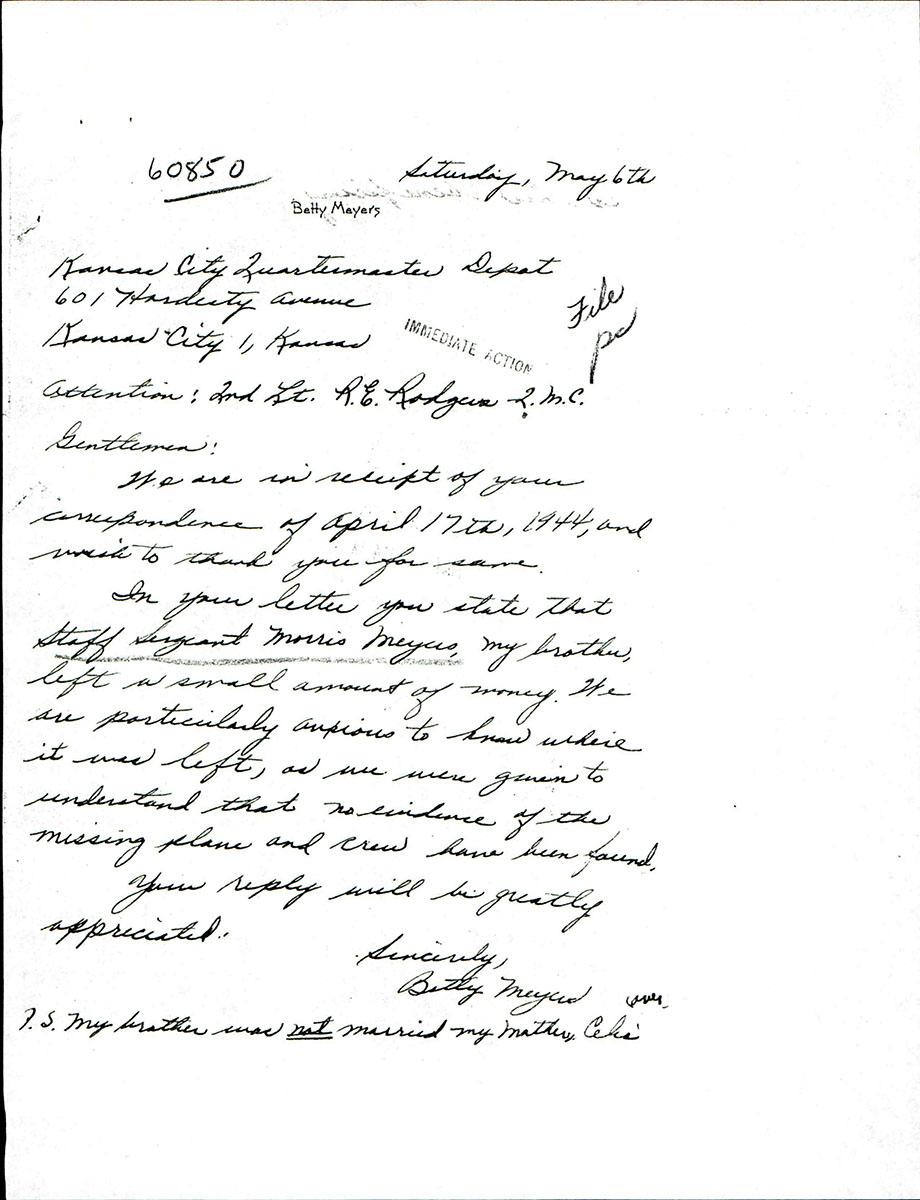 60850
Saturday, May 6th
Betty Meyers
Kansas City Quartermaster Depot
601 Hardesty Avenue
Kansas City 1, Kansas
File
IMMEDIATE ACTION
Attention: 2nd Lt. R.E. Rodgers Q.M.C.
Gentlemen:
We are in receipt of your
correspondence of April 17th, 1944, and
wish to thank you for same.
In your letter you state that
Staff Sergeant Morris Meyers, my brother,
left a small amount of money. We
are particularly anxious to know where
it was left, as we were given to
understand that no evidence of the
missing plane and crew have been found.
Your reply will be greatly
appreciated.
Sincerely,
Betty Meyers
over.
P.S. My brother was not married my Mother, Celia